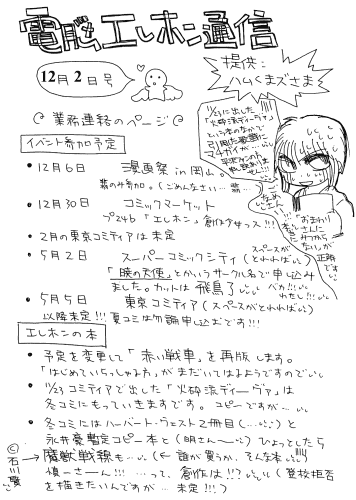 電脳エレホン通信
提供：
ハムくまずさま
12月2日号
業務連絡のページ
11/23に出した
「火砕流ディーヴァ」
という本のなかで
引用した歌詞に
マチガイが……。
「おまわりさんに
みつからないが
正解ですい
わたし!!!
イベント参加予定
・12月6日　漫画祭 in 岡山。
翡のみ参加。（ごめんなさい… 翡…
・12月30日　コミックマーケット
プ24b「エレホン」創作少女っス!!!
・2月の東京コミティアは未定
・5月2日　スーパーコミックシティ（スペースがとれればい）
「暁の天使」とかいうサークル名で申し込み
ました。カットは飛鳥了
・5月5日　東京コミティア（スペースがとれればい）
以降未定!!! 夏コミは勿論申し込むです!!!
エレホンの本
・予定を変更して「赤い戦車」を再版します。
「はじめていらっしゃる方」がまだいてはるようですので
・11/23コミティアで出した「火砕流ディーヴァ」は
冬コミにもっていきますです。コピーですが…
・冬コミにはハーバート・ウェスト2冊目（…）と
永井豪暫定コピー本と（明さん〜）ひょっとしたら
魔獣戦線も…（← 誰が買うか、そんな本）
慎一さーん!!! …って、創作は!!?（登校拒否
を描きたいんですが… 未定!!!）
©石川賢→